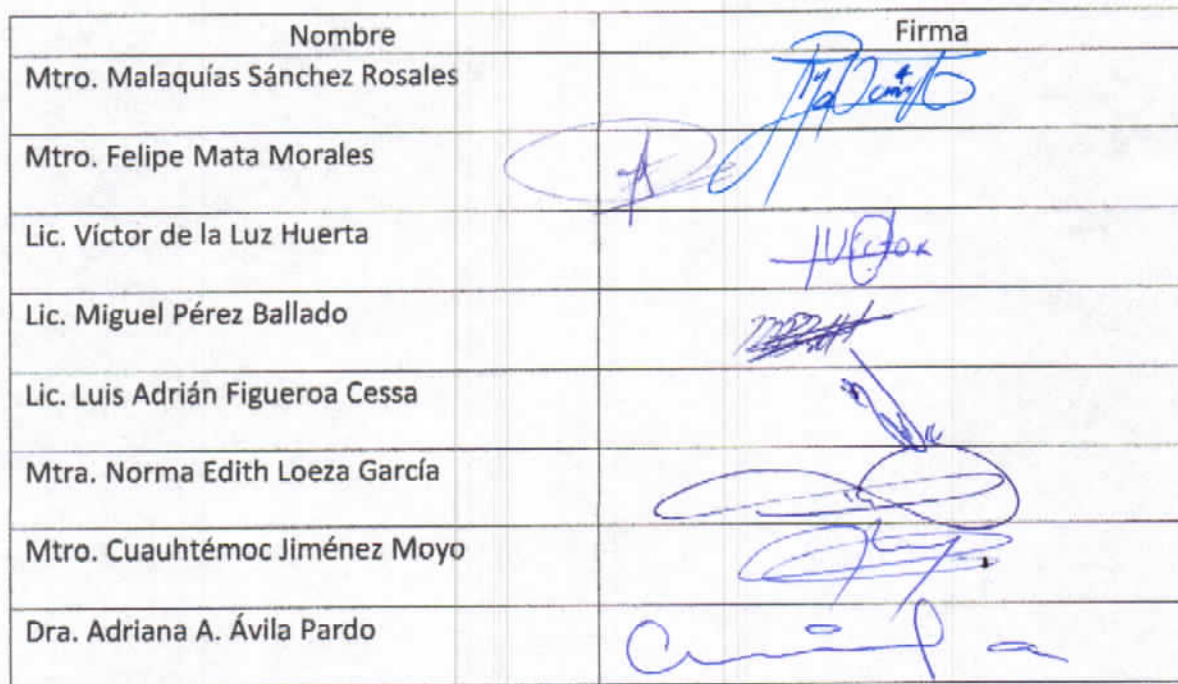 Nombre Firma
Mtro. Malaquías Sánchez Rosales
Mtro. Felipe Mata Morales
Lic. Víctor de la Luz Huerta
Lic. Miguel Pérez Ballado
Lic. Luis Adrián Figueroa Cessa
Mtra. Norma Edith Loeza García
Mtro. Cuauhtémoc Jiménez Moyo
Dra. Adriana A. Ávila Pardo